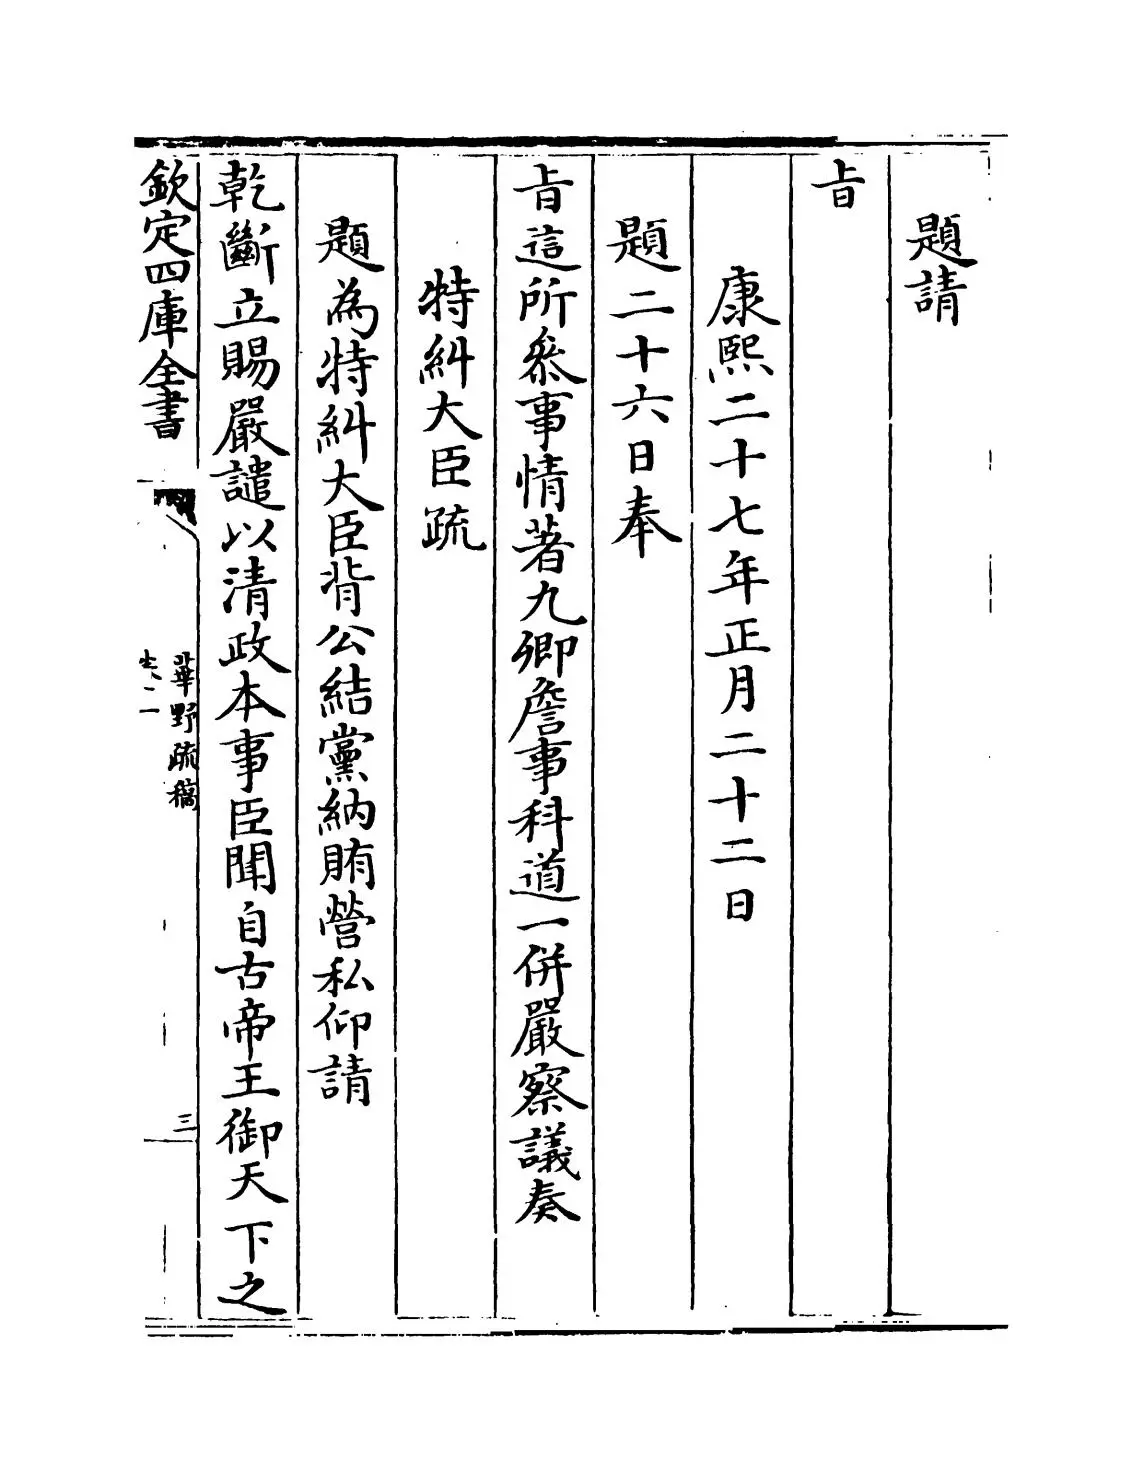 題請
㫖
康熙二十七年正月二十二日
題二十六日奉
㫖這所叅事情著九卿詹事科道一併嚴察議奏
特糾大臣疏
題為特糾大臣背公結黨納賄營私仰請
乾斷立賜嚴譴以清政本事臣聞自古帝王御天下之
欽定四庫全書
華野疏稿
三